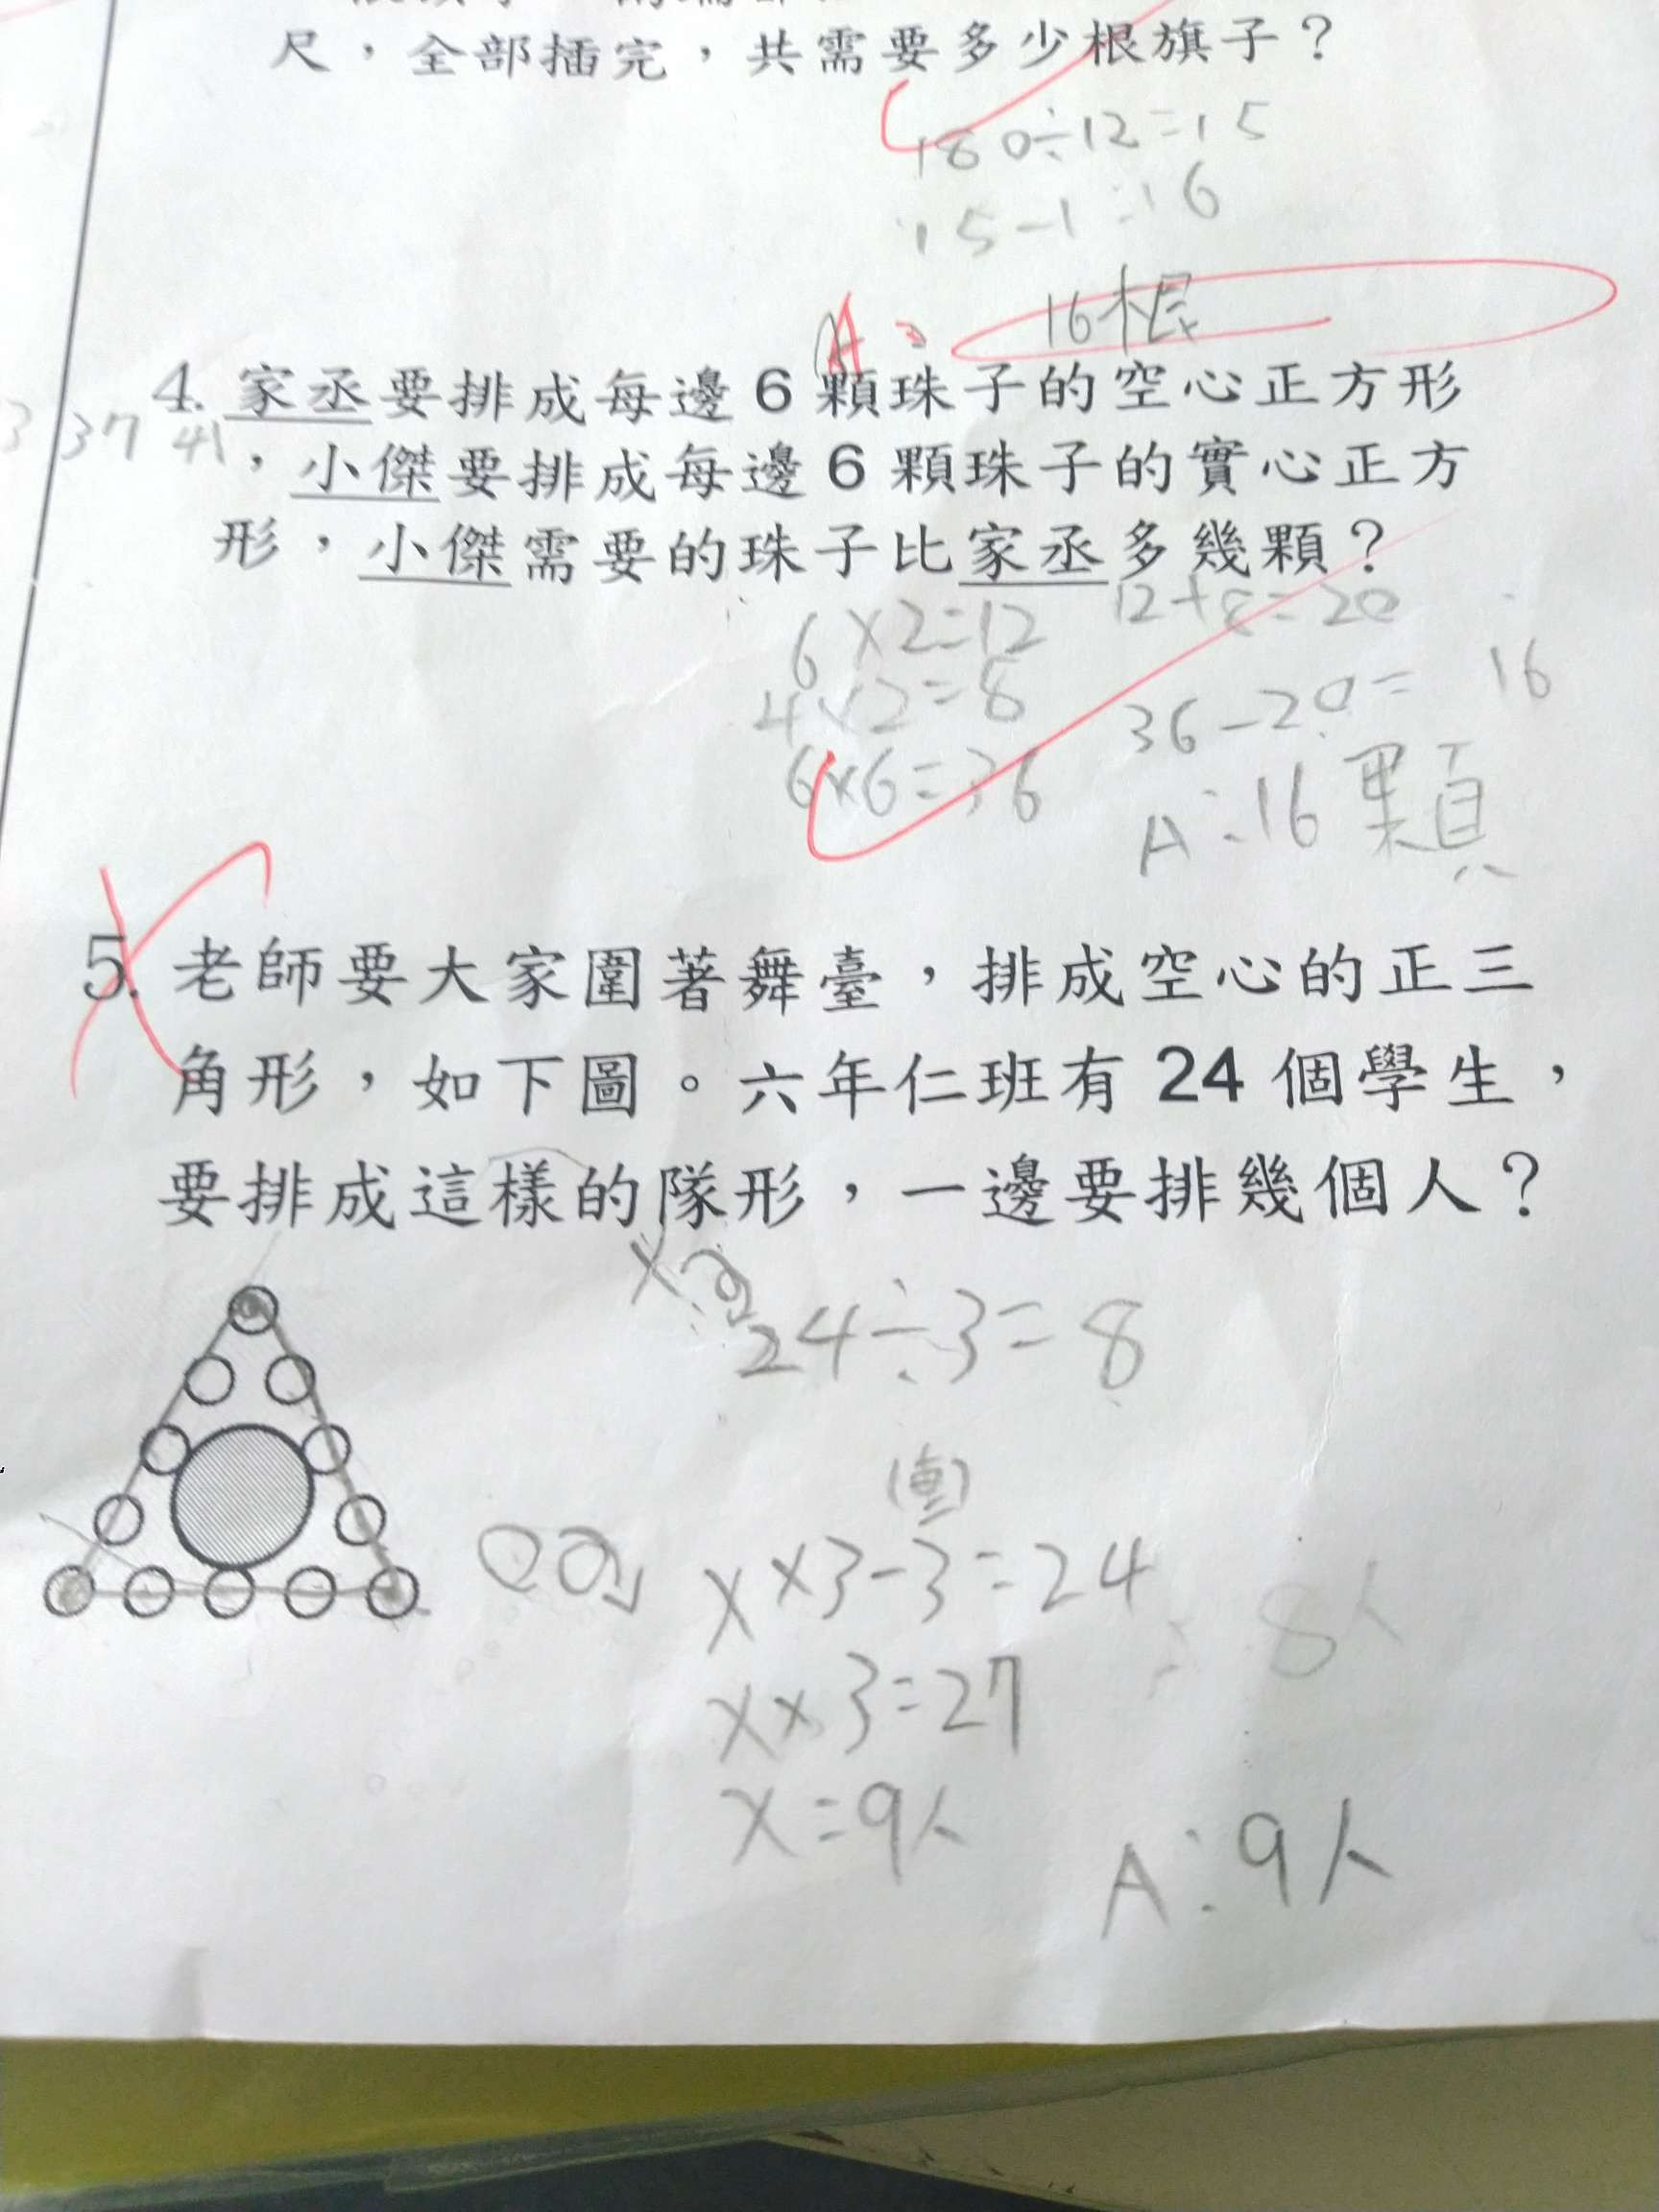 尺，全部插完，共需要多少根旗子？
180÷12=15
15-1=16
A: 16根
4. 家丞要排成每邊 6 顆珠子的空心正方形
37 41
，小傑要排成每邊 6 顆珠子的實心正方
形，小傑需要的珠子比家丞多幾顆？
6×2=12 12+8=20
4×2=8 36-20= 16
6×6=36 A:16顆
5. 老師要大家圍著舞臺，排成空心的正三
角形，如下圖。六年仁班有 24 個學生，
要排成這樣的隊形，一邊要排幾個人？
24÷3=8
X×3-3=24
8人
X×3=27
X=9人
A:9人